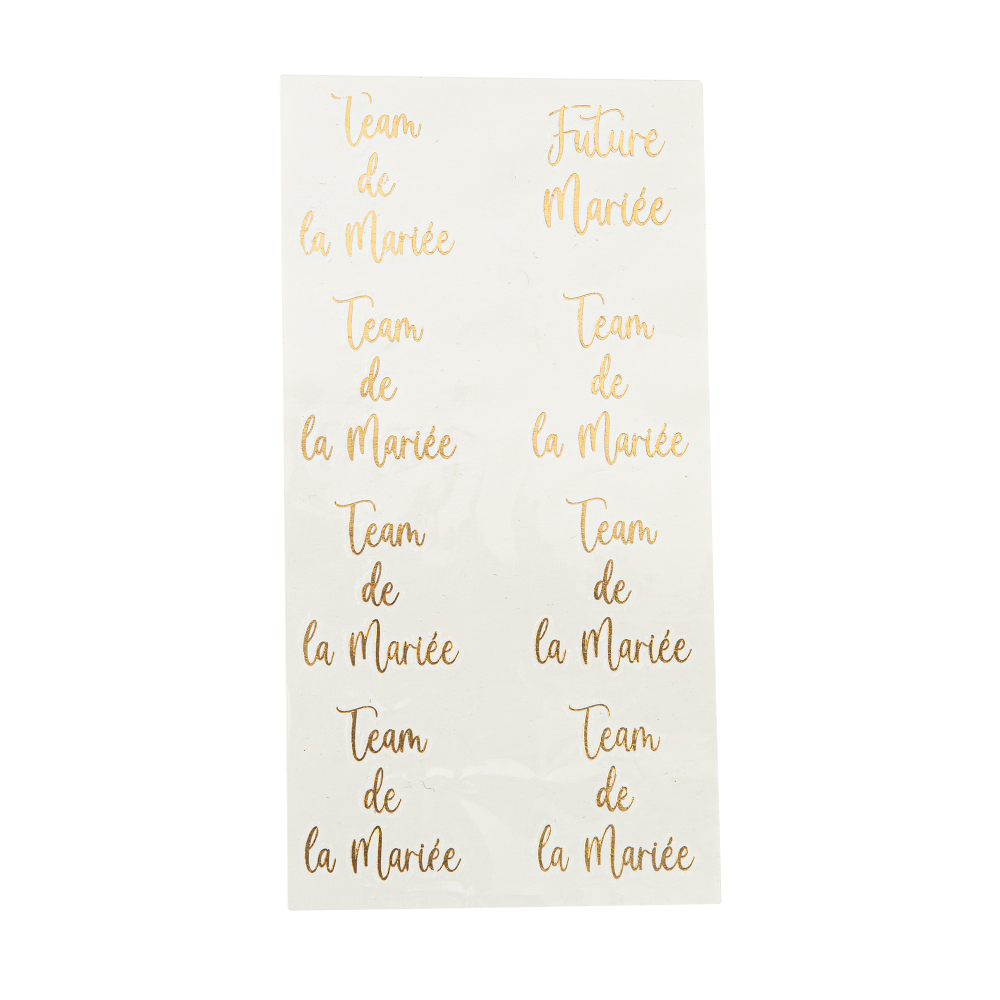 Team
de
la Mariée
Future
Mariée
Team
de
la Mariée
Team
de
la Mariée
Team
de
la Mariée
Team
de
la Mariée
Team
de
la Mariée
Team
de
la Mariée